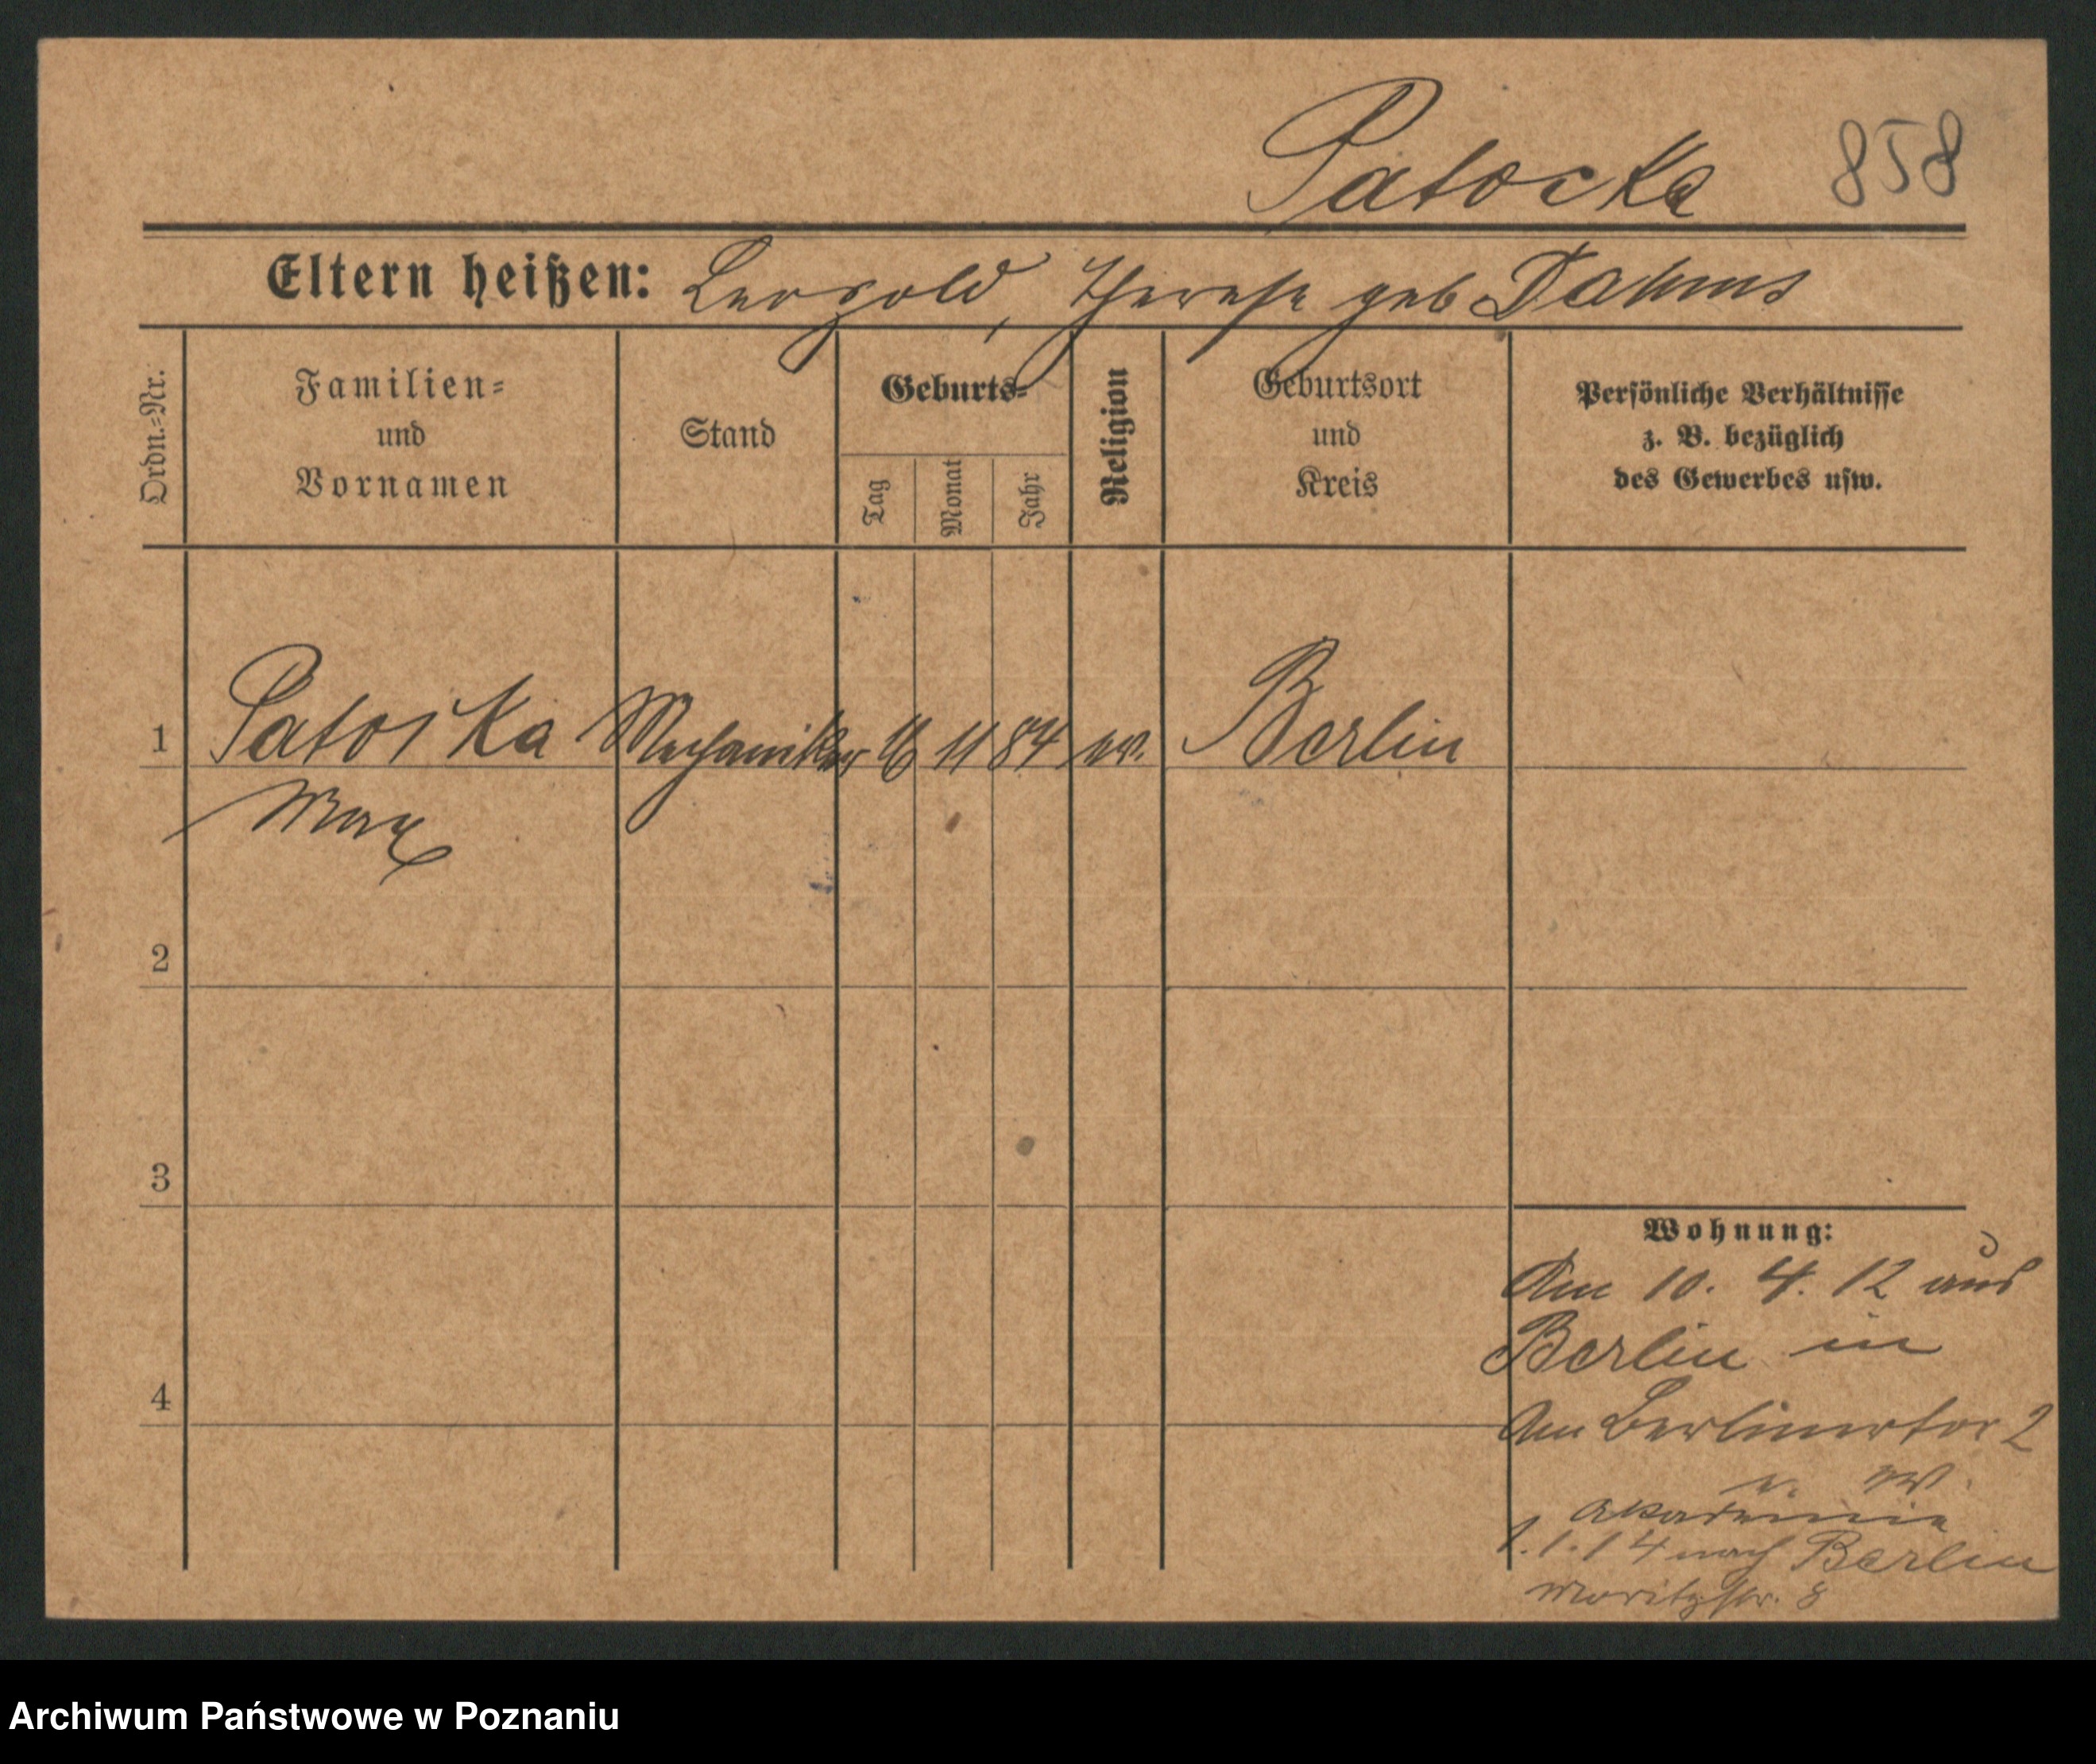 Patocka 858
Eltern heißen: Leopold, Therese geb Dahms
Ordn.=Nr.
Familien=
und
Vornamen
Stand
Geburts=
Tag
Monat
Jahr
Religion
Geburtsort
und
Kreis
Persönliche Verhältnisse
z. B. bezüglich
des Gewerbes usw.
1 Patocka Mechaniker 16 11 84 ev. Berlin
Max
2
3
4
Wohnung:
Am 10. 4. 12 aus
Berlin in
Am Berlinertor 2
Akademie
1.1.14 nach Berlin
Moritzstr. 8
Archiwum Państwowe w Poznaniu